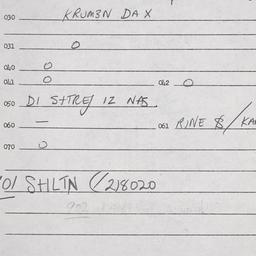 030 KRUMBN DAX
031 0
040 0
041 0 042 0
050 DI STREJ 12 NAS
060 — 061 RINE 8/KA
070 0
01 STILTN (/218020